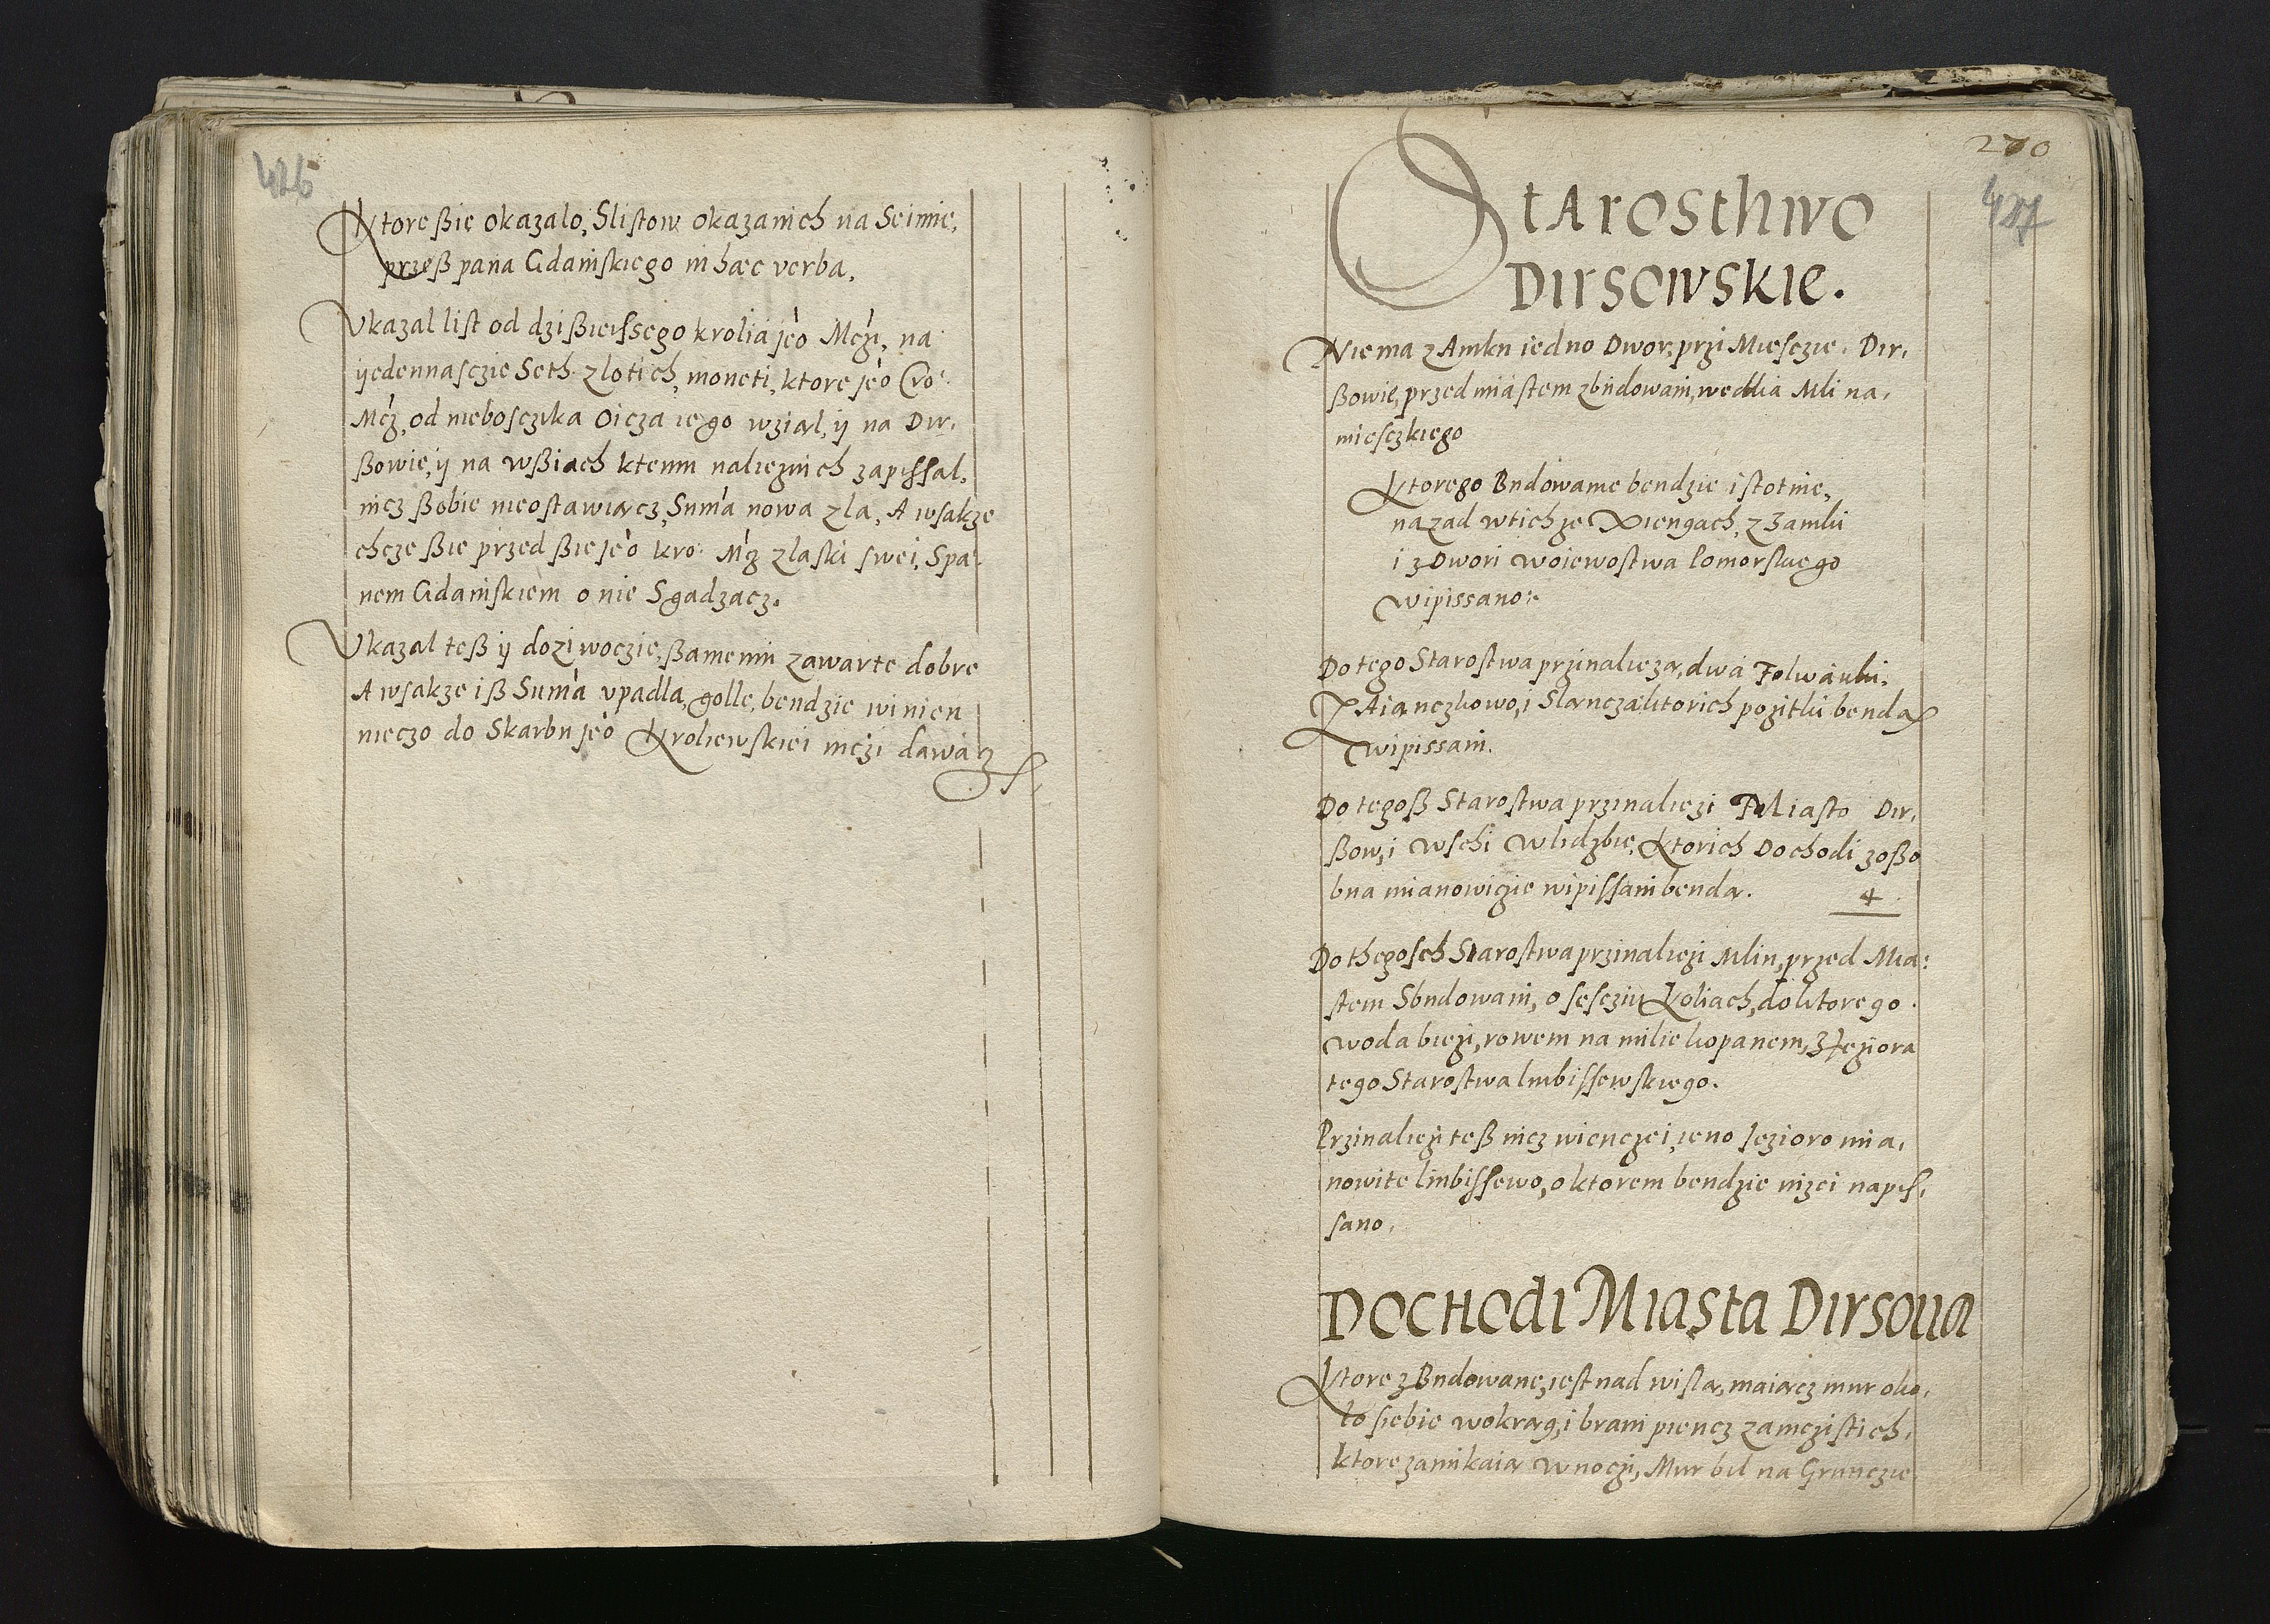 426
Ktore ßie okazalo, Slistow okazanich na Seimie,
przeß pana Gdaniskiego in hæc verba.
Vkazal list od dzißieissego krolia jeo Mczi, na
ijedennasczie Seth zlotich, moneti, ktore jeo Cro:
Mcz, od nieboscżika Oicza iego wziął, ij na Dir,
ßowie, ij na wßiach ktemu naliezniċh zapissal,
nicz ßobie nieostawiącz, Suma nowa zla, A wsakze
chcze ßie przed ßie jeo kro: Mcz zlaski swei, Spa,
nem Gdaniskiem o nie Sgadzacz.
Vkazal teß ij doziwoczie, ßamemu zawarte dobre
A wsakze iß Suma vpadla, golle, bendzie winien
nieczo do Skarbu jeo Kroliewskiei mczi dawacz
270
427
Starosthwo
Dirsowskie.
Niema zAmku iedno Dwor, przi Miesczie, Dir,
ßowie, przed miastem zbudowani, wedlia Mlina,
miesczkiego
Ktorego Budowanie bendzie istotnie,
nazad wtichze Xiengach, z Zamki
i z Dwori woiewostwa Pomorskiego
wipissano:
Do tego Starostwa przinalieżą, dwa Folwarki,
ZAiączkowo, i Slancza, ktorich pozitki bendą
wipissani.
Do tegoß Starostwa przinaliezi Miasto Dir,
ßow, i wschi wlidzbie, ktorich Dochodi zoßo
bna mianowiczie wipissani bendą. 4
Do thegosch Starostwa przinaliezi Mlin, przed Mia:
stem Sbudowani, o sesciu Koliach, do ktorego
woda biezi, rowem na milie kopanem, z Jeziora
tego Starostwa lubissewskiego.
Przinaliezi teß nicz wienczei, ieno Jezioro mia,
nowite lubissewo, o ktorem bendzie nizei napis,
sano,
Dochodi Miasta Dirsoua
Ktore zBudowane, iest nad wislą, maiącz mur oko,
lo siebie wokrąg, i brani piencz zamczistich,
ktore zamikaią wnoczi, Mur bil na Grunczie